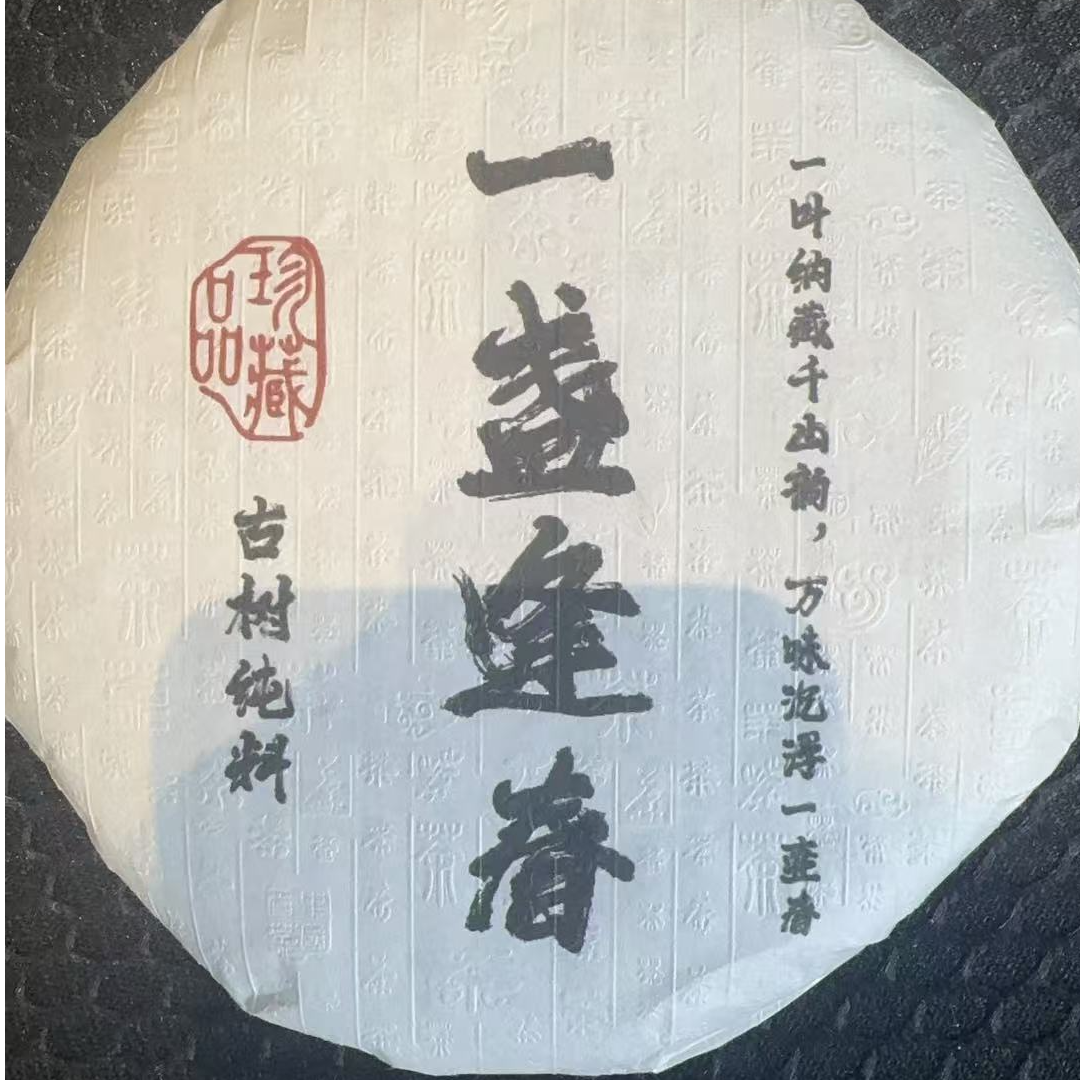 一叶纳藏千山韵，万味沉浮一壶春
一盏逢春
珍藏品
古树纯料